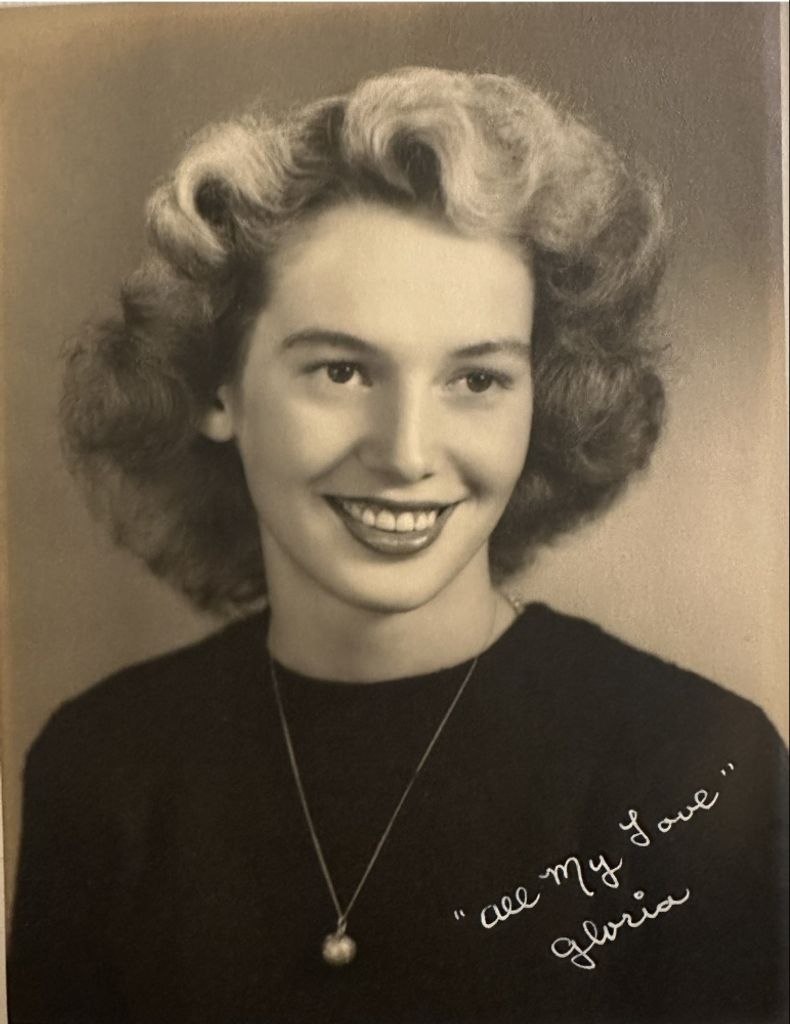 "All My Love"
Gloria